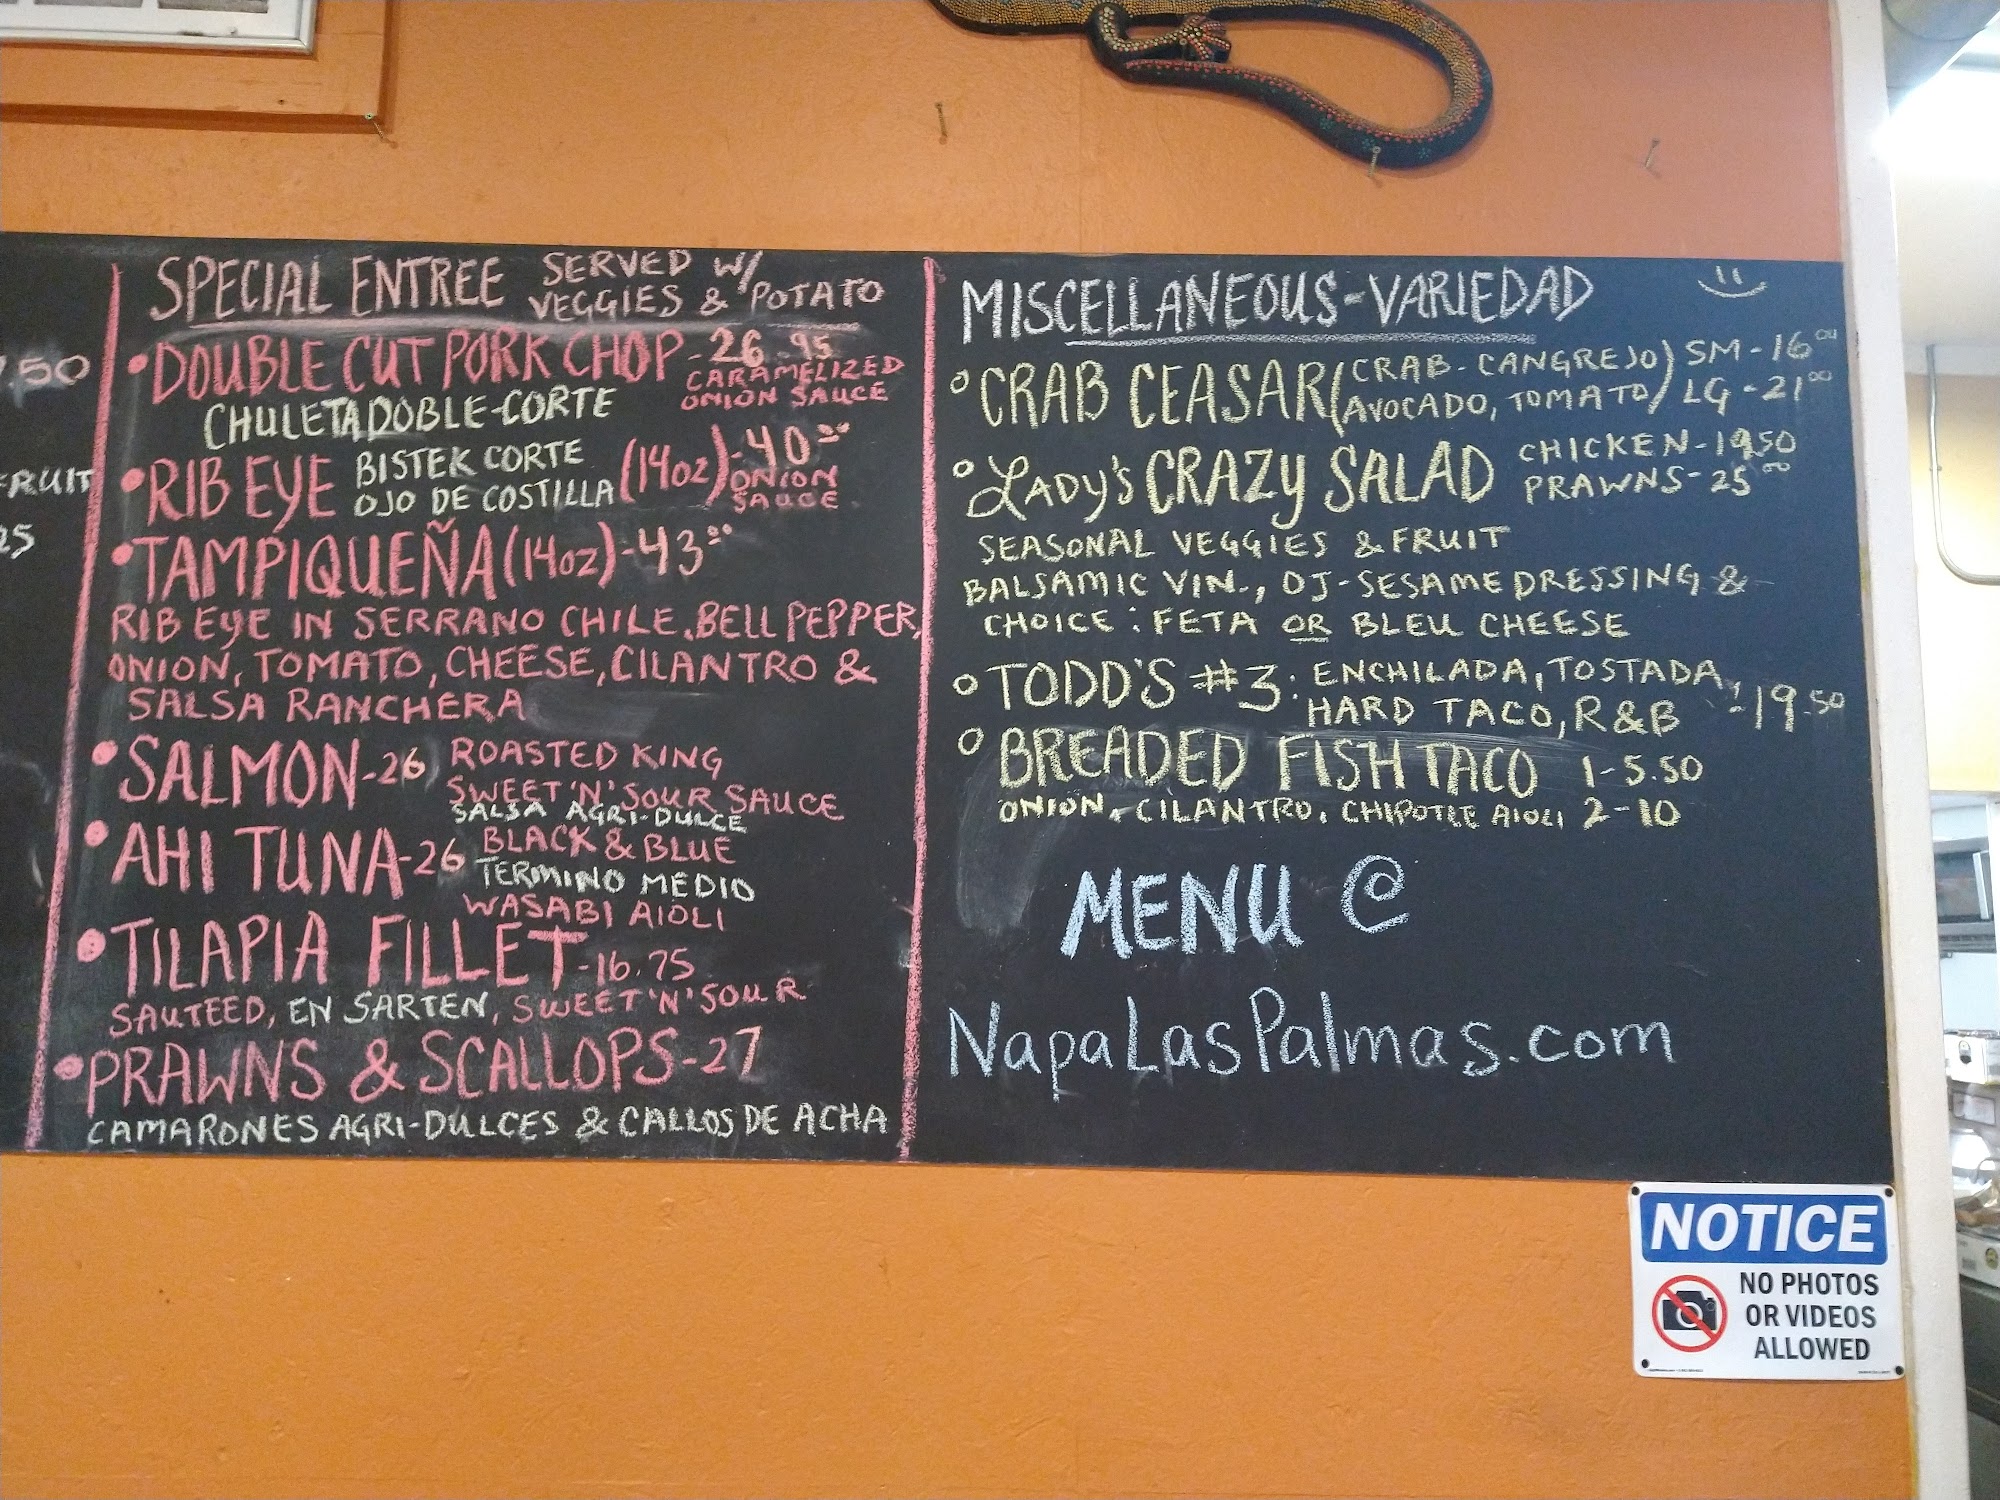 .50
FRUIT
25
SPECIAL ENTREE SERVED W/
VEGGIES & POTATO
•DOUBLE CUT PORK CHOP-26.95
CARAMELIZED
ONION SAUCE
CHULETA DOBLE-CORTE
•RIB EYE BISTEK CORTE
OJO DE COSTILLA (14OZ)-40.00
ONION
SAUCE
•TAMPIQUEÑA (14OZ)-43.00
RIB EYE IN SERRANO CHILE, BELL PEPPER,
ONION, TOMATO, CHEESE, CILANTRO &
SALSA RANCHERA
•SALMON-26 ROASTED KING
SWEET'N'SOUR SAUCE
SALSA AGRI-DULCE
•AHI TUNA-26 BLACK & BLUE
TERMINO MEDIO
WASABI AIOLI
•TILAPIA FILLET-16.75
SAUTEED, EN SARTEN, SWEET'N'SOUR
•PRAWNS & SCALLOPS-27
CAMARONES AGRI-DULCES & CALLOS DE ACHA
MISCELLANEOUS-VARIEDAD
CRAB CEASAR (CRAB-CANGREJO) SM-16.00
AVOCADO, TOMATO) LG-21.00
LADY'S CRAZY SALAD CHICKEN-19.50
PRAWNS-25.00
SEASONAL VEGGIES & FRUIT
BALSAMIC VIN., OJ-SESAME DRESSING &
CHOICE: FETA OR BLEU CHEESE
TODD'S #3: ENCHILADA, TOSTADA,
HARD TACO, R&B -19.50
BREADED FISH TACO 1-5.50
ONION, CILANTRO, CHIPOTLE AIOLI 2-10
MENU @
NapaLasPalmas.com
NOTICE
NO PHOTOS
OR VIDEOS
ALLOWED